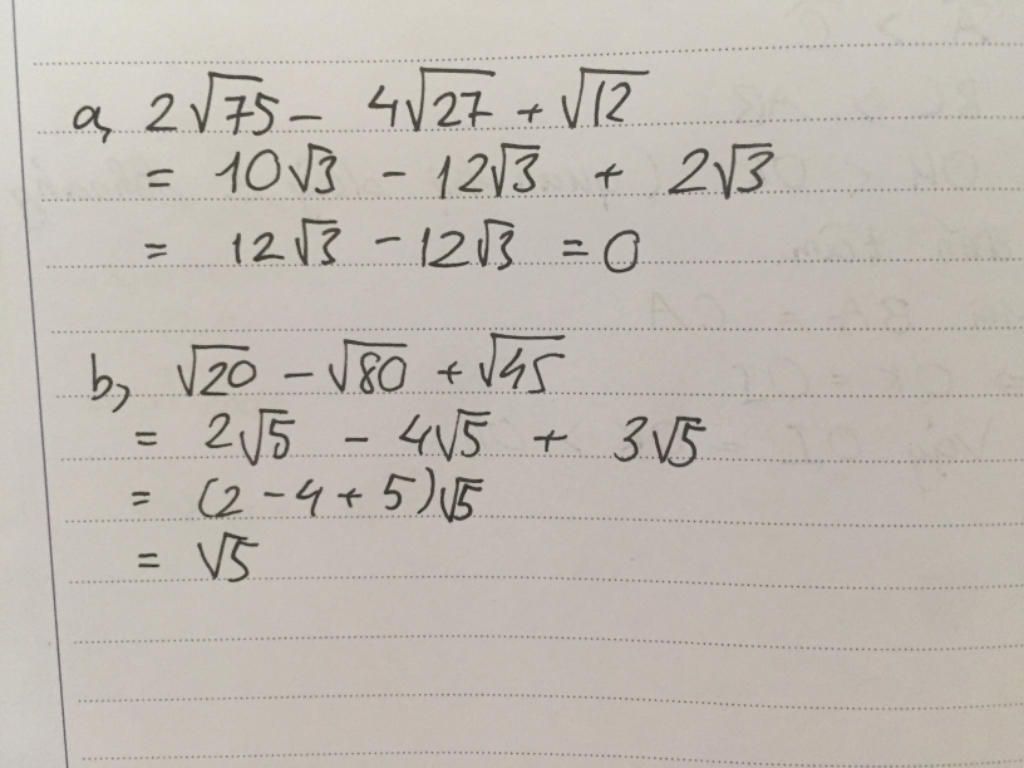 a, 2√75 - 4√27 + √12
= 10√3 - 12√3 + 2√3
= 12√3 - 12√3 = 0
b, √20 - √80 + √45
= 2√5 - 4√5 + 3√5
= (2 - 4 + 5)√5
= √5